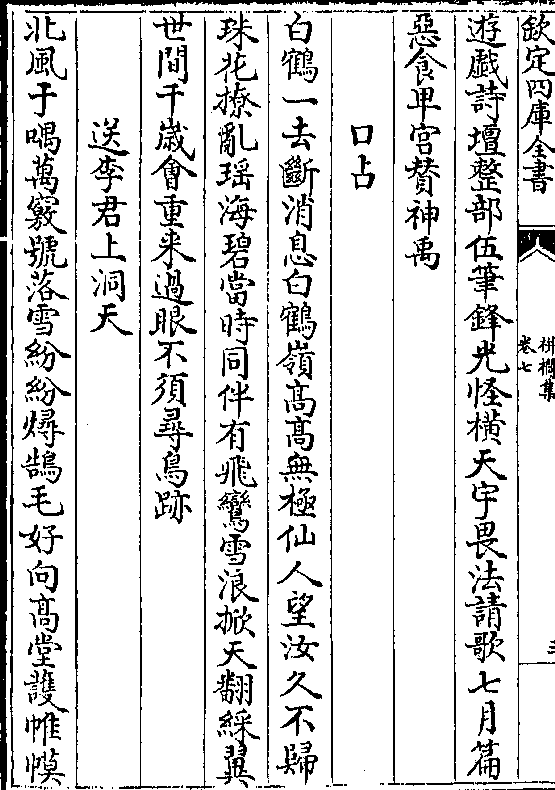 欽定四庫全書
栟櫚集
卷七
遊戲詩壇整部伍筆鋒光怪橫天宇畏法請歌七月篇
惡食卑宮贊神禹
口占
白鶴一去斷消息白鶴嶺髙髙無極仙人望汝久不歸
珠花撩亂瑶海碧當時同伴有飛鸞雪浪掀天翻綵翼
世間千嵗會重来過眼不須尋鳥跡
送李君上洞天
北風于喁萬竅號落雪紛紛燖鵠毛好向髙堂護帷幙